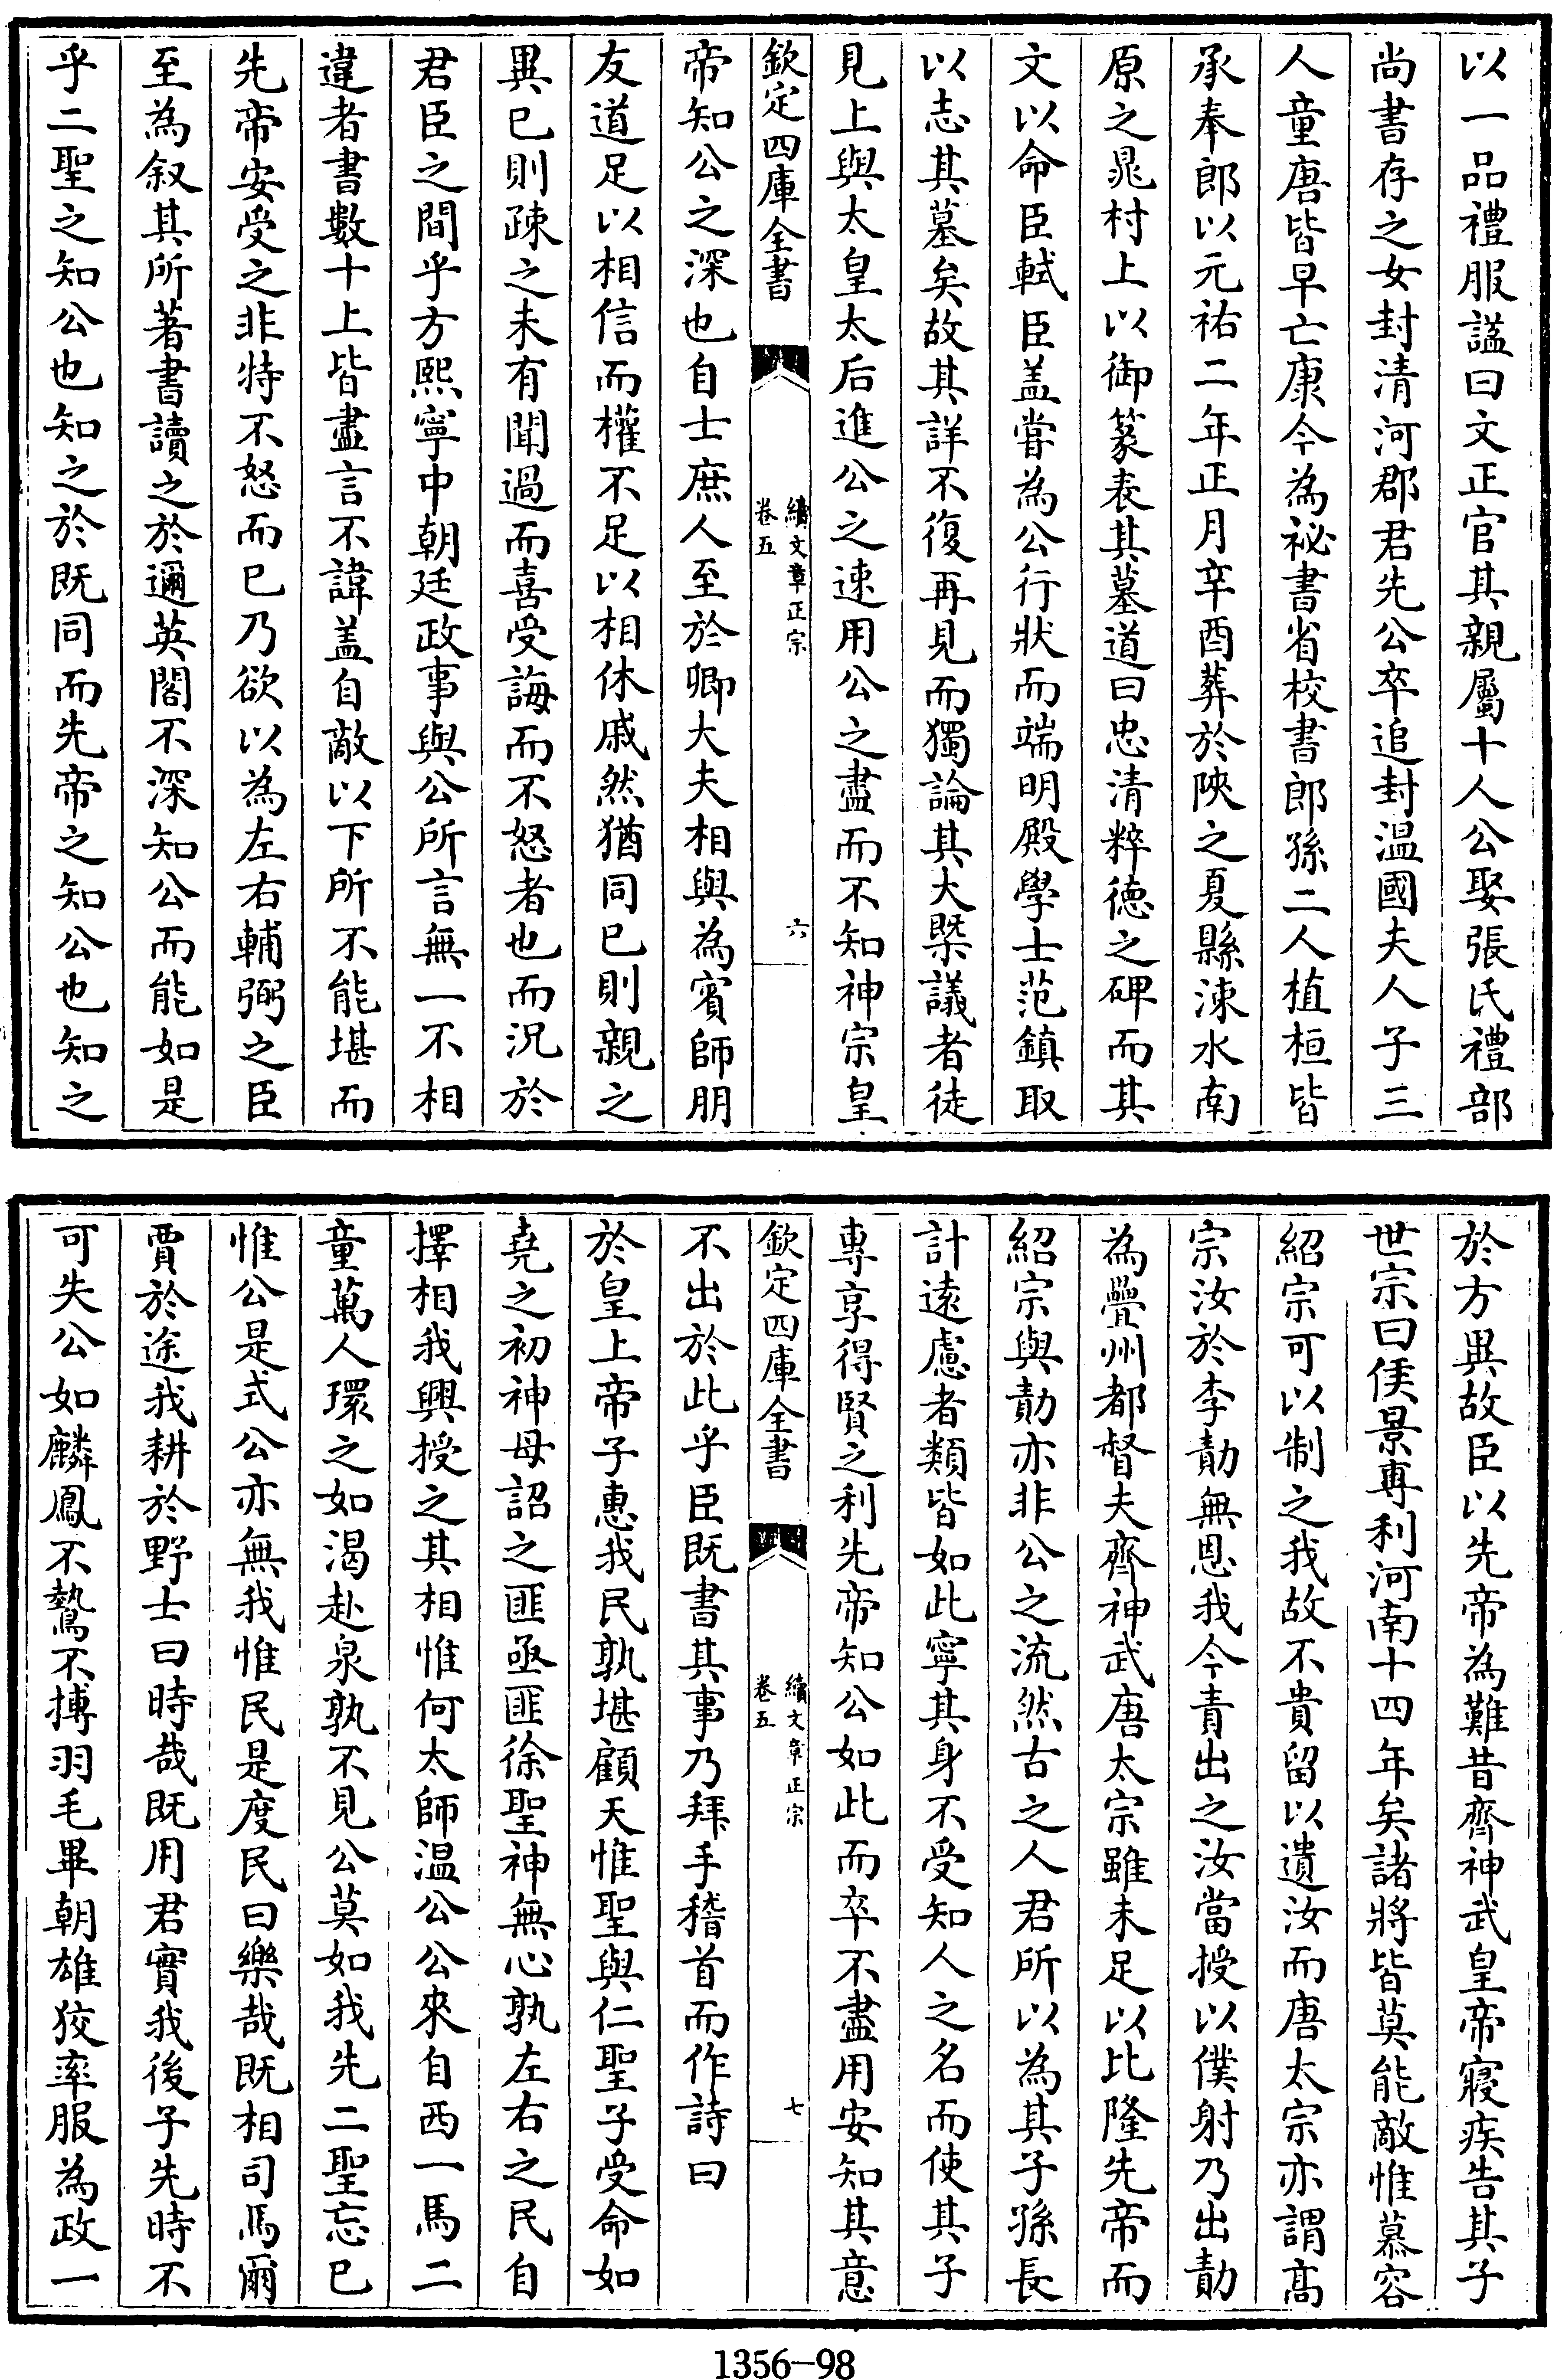 以一品禮服謚曰文正官其親屬十人公娶張氏禮部
尚書存之女封清河郡君先公卒追封温國夫人子三
人童唐皆早亡康今為祕書省校書郎孫二人植桓皆
承奉郎以元祐二年正月辛酉葬於陜之夏縣涑水南
原之晁村上以御篆表其墓道曰忠清粹德之碑而其
文以命臣軾臣盖嘗為公行狀而端明殿學士范鎮取
以志其墓矣故其詳不復再見而獨論其大槩議者徒
見上與太皇太后進公之速用公之盡而不知神宗皇
欽定四庫全書
續文章正宗
卷五
六
帝知公之深也自士庶人至於卿大夫相與為賓師朋
友道足以相信而權不足以相休戚然猶同已則親之
異已則疎之未有聞過而喜受誨而不怒者也而況於
君臣之間乎方熙寧中朝廷政事與公所言無一不相
違者書數十上皆盡言不諱盖自敵以下所不能堪而
先帝安受之非特不怒而已乃欲以為左右輔弼之臣
至為叙其所著書讀之於邇英閣不深知公而能如是
乎二聖之知公也知之於既同而先帝之知公也知之
於方異故臣以先帝為難昔齊神武皇帝寢疾告其子
世宗曰侯景專利河南十四年矣諸將皆莫能敵惟慕容
紹宗可以制之我故不貴留以遺汝而唐太宗亦謂髙
宗汝於李勣無恩我今責出之汝當授以僕射乃出勣
為疊州都督夫齊神武唐太宗雖未足以比隆先帝而
紹宗與勣亦非公之流然古之人君所以為其子孫長
計遠慮者類皆如此寧其身不受知人之名而使其子
專享得賢之利先帝知公如此而卒不盡用安知其意
欽定四庫全書
續文章正宗
卷五
七
不出於此乎臣既書其事乃拜手稽首而作詩曰
於皇上帝子惠我民孰堪顧天惟聖與仁聖子受命如
堯之初神母詔之匪亟匪徐聖神無心孰左右之民自
擇相我興授之其相惟何太師温公公來自西一馬二
童萬人環之如渴赴泉孰不見公莫如我先二聖忘已
惟公是式公亦無我惟民是度民曰樂哉既相司馬爾
賈於途我耕於野士曰時哉既用君實我後子先時不
可失公如麟鳳不鷙不搏羽毛畢朝雄狡率服為政一
1356-98